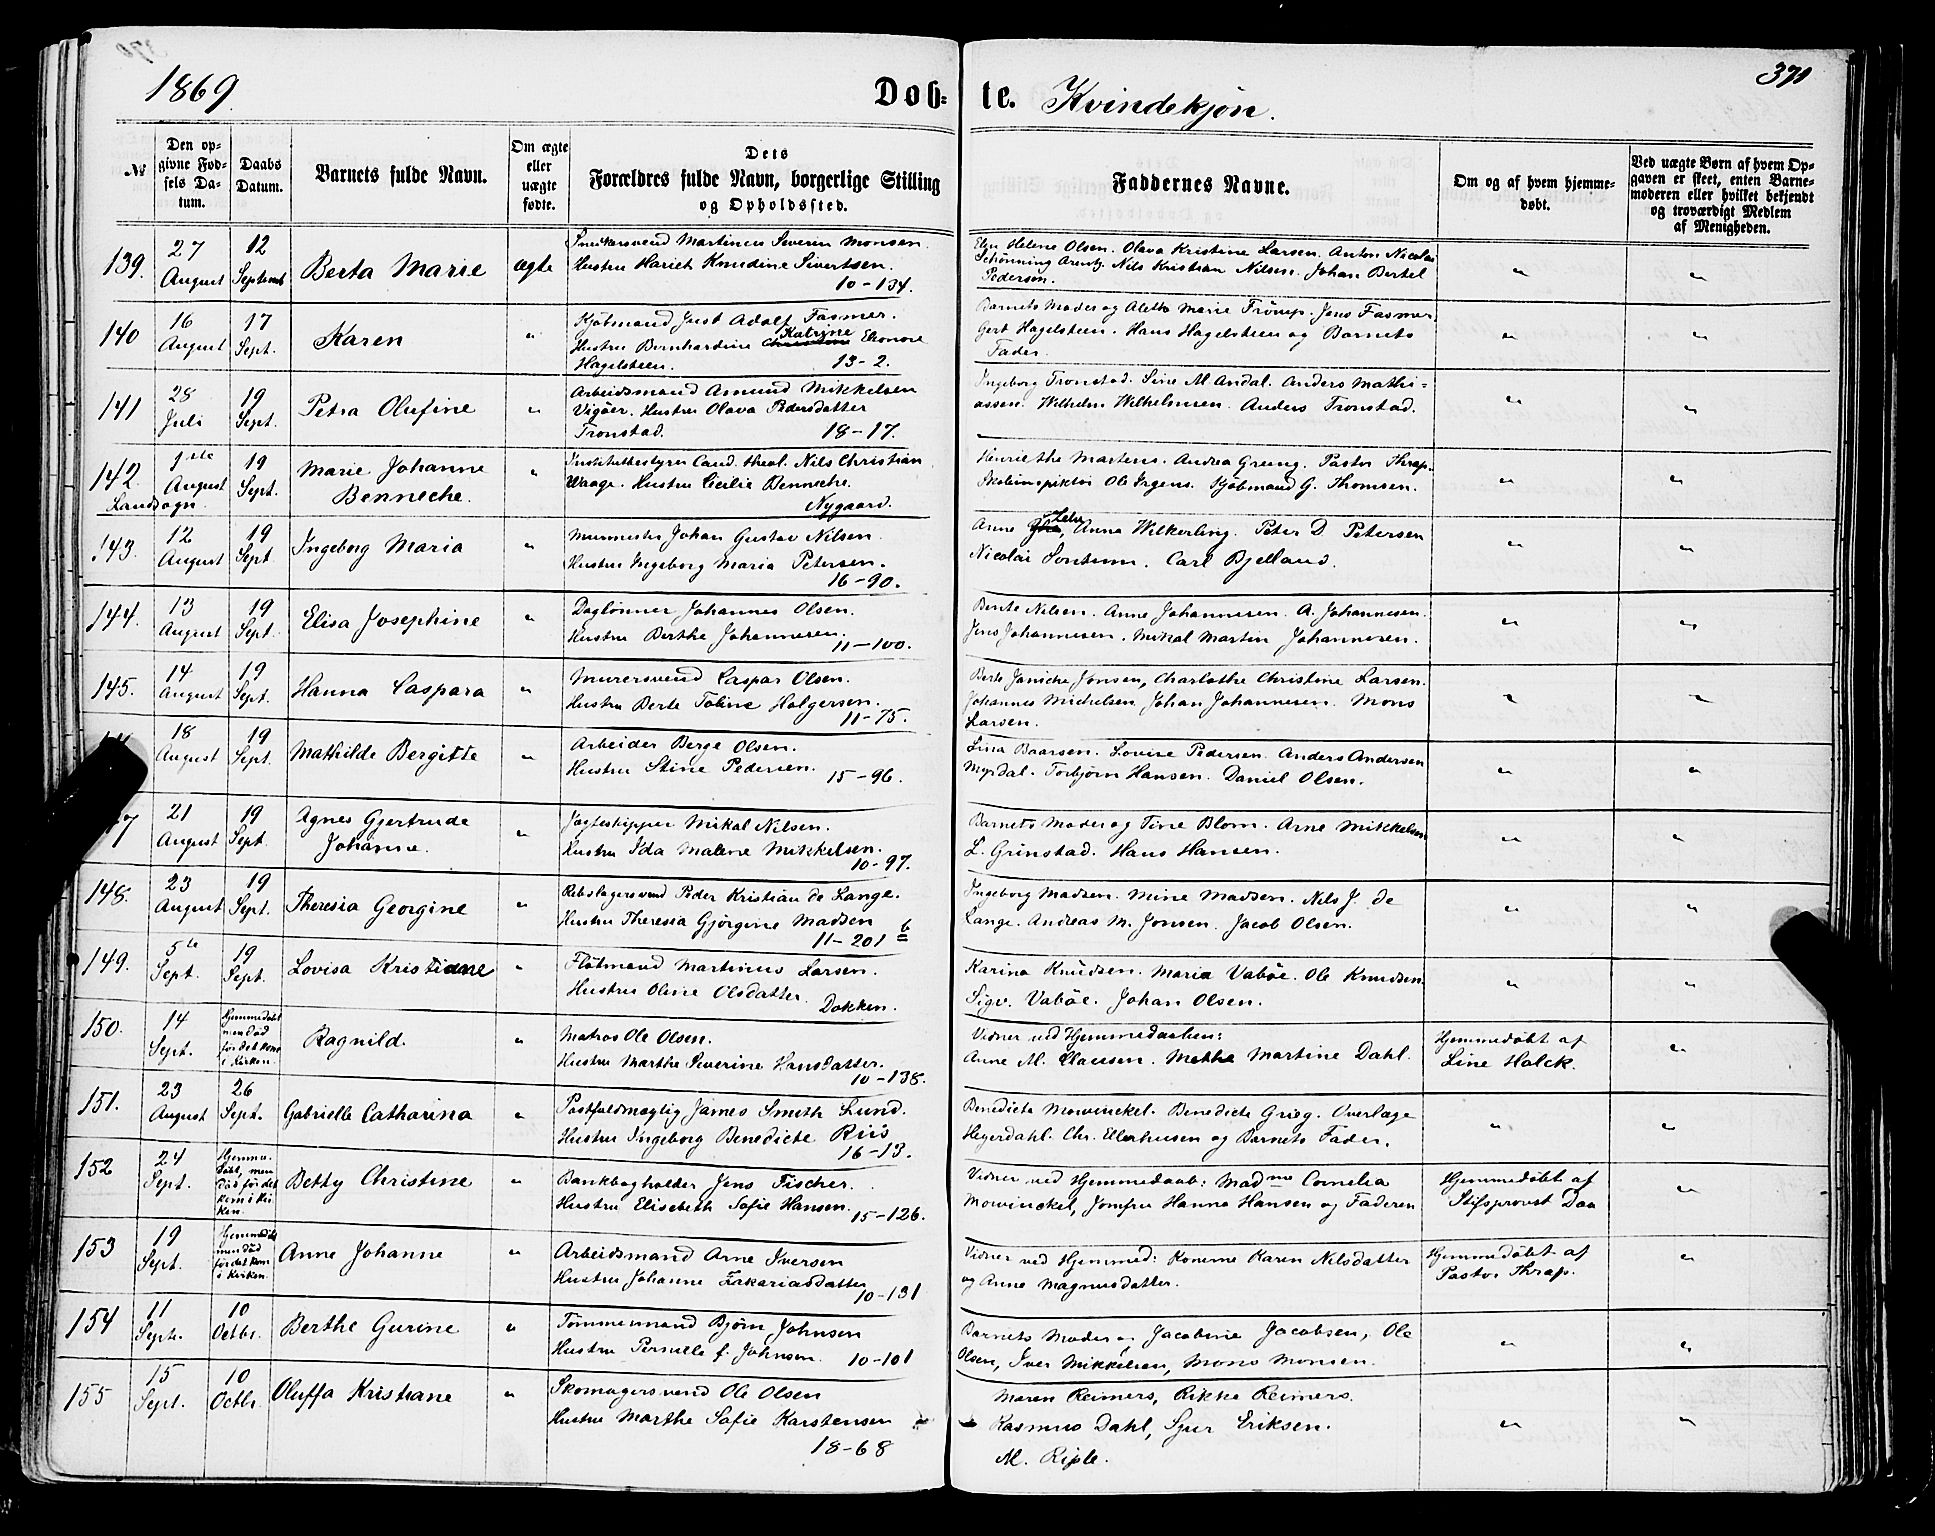 1869
Døb-
te. Kvindekjøn.
371
№
Den op-
givne Fød-
sels Da-
tum.
Daabs
Datum.
Barnets fulde Navn.
Om ægte
eller
uægte
fødte.
Dets
Forældres fulde Navn, borgerlige Stilling
og Opholdssted.
Faddernes Navne.
Om og af hvem hjemme-
døbt.
Ved uægte Børn af hvem Op-
gaven er skeet, enten Barne-
moderen eller hvilket bekjendt
og troværdigt Medlem
af Menigheden.
139. 27 August 12 Septemb Berta Marie ægte
Snedkersvend Martinus Severin Monsen.
Hustru Hariet Knudine Sivertsen.
10-134.
Helene Olsen. Olava Kristine Larsen. Anton Nicolai
Schønning Arentz. Nils Kristian Nilsen. Johan Bertel
Pedersen.
140 16 August 17 Sept. Karen "
Kjøbmand Just Adolf Fasmer.
Hustru Bernhardine Katrine Elonore
Hagelsteen. 13-2.
Barnets Moder og Aletta Marie Trörup. Jens Fasmer.
Gert Hagelsteen. Hans Hagelsteen og Barnets
Fader.
141 28 Juli 19 Sept. Petra Olufine "
Arbeidsmand Amund Mikkelsen
Vigøer. Hustru Olava Pedersdatter
Tronstad. 18-17.
Ingeborg Tronstad. Sine M. Andal. Anders Mathi-
assen. Wilhelm Wilhelmsen. Anders Tronstad.
142. 1ste August 19 Sept. Marie Johanne
Benneche. "
Landsogn
Institutbestyrer Cand. theol. Nils Christian
Waage. Hustru Cecilie Benneche.
Nygaard.
Henriethe Martens. Andrea Greung. Pastor Thrap.
Skoleinspektør Ole Irgens. Kjøbmand G. Thomsen.
143. 12 August 19 Sept Ingeborg Maria "
Murmester Johan Gustav Nilsen.
Hustru Ingeborg Maria Petersen.
16-90.
Anne Anna Wilkerling. Peter D Petersen
Nicolai Sontum. Carl Bjelland.
144. 13 August 19 Sept. Elisa Josephine "
Daglønner Johannes Olsen.
Hustru Berthe Johannesen.
11-100.
Bente Nilsen. Anne Johannesen. A. Johannesen.
Jens Johannesen. Mikal Martin Johannesen.
145. 14 August 19 Sept. Hanna Caspara "
Murersvend Caspar Olsen.
Hustru Berte Toline Holgersen.
11-75.
Berte Janicke Jonsen, Charlothe Christine Larsen.
Johannes Michelsen Johan Johannesen. Mons
Larsen.
18 August 19 Sept. Mathilde Bergitte "
Arbeider Berge Olsen.
Hustru Stine Pedersen. 15-96.
Lina Baarsen. Lovise Pedersen. Anders Andersen
Myrdal. Torbjørn Hansen. Daniel Olsen.
7 21 August 19 Sept. Agnes Gjertrude
Johanne. "
Jagteskipper Mikal Nilsen.
Hustru Ida Malene Mikkelsen.
10-97.
Barnets Moder og Tine Blom. Arne Mikkelsen
L. Grinstad. Hans Hansen.
148. 23 August 19 Sept. Theresia Georgine "
Rebslagersvend Peder Kristian de Lange.
Hustru Theresia Gjørgine Madsen
11-201 b
Ingeborg Madsen. Mine Madsen. Nils J. de
Lange. Andreas M. Jonsen. Jacob Olsen.
149. 5te Sept. 19 Sept. Lovisa Kristiane "
Flötmand Martinus Larsen.
Hustru Oline Olsdatter.
Dokken.
Karina Knudsen. Maria Vaböe. Ole Knudsen.
Sigv. Vaböe. Johan Olsen.
150. 14 Sept. Hjemmedöbt
men död
för det kom
i Kirken. Ragnild. "
Matros Ole Olsen.
Hustru Marthe Severine Hansdatter.
10-138.
Vidner ved Hjemmedaaben:
Anne M. Clausen. Methe Martine Dahl.
Hjemmedöbt af
Line Holck.
151. 23 August 26 Sept. Gabrielle Catharina "
Postfuldmægtig James Smeth Lund.
Hustru Ingeborg Benedicte Riis
16-13.
Benedicte Mowinckel. Benedicte Grieg. Overlæge
Heyerdahl. Chr. Ellerhusen og Barnets Fader.
152 24 Sept. Hjemme-
döbt, men
död för det
kom i Kir
ken. Betty Christine "
Bankbogholder Jens Fischer.
Hustru Elisebeth Sofie Hansen.
15-126.
Vidner ved Hjemmedaab: Madme Cornelia
Mowinckel, Jomfru Hanna Hansen og Faderen
Hjemmedöbt af
Stifsprovst Daa
153 19 Sept. Hjemmedöbt
men död
för det kom
i Kirken. Anne Johanne "
Arbeidsmand Arne Iversen
Hustru Johanne Zakariasdatter
10-131
Vidner ved Hjemmed: Konerne Karen Nilsdatter
og Anne Magnusdatter.
Hjemmedöbt af
Pastor Thrap.
154 11 Sept. 10 Octbr. Berthe Gurine "
Tømmermand Bjørn Johnsen
Hustru Pernille f. Johnsen. 10-101
Barnets Moder og Jacobine Jacobsen, Ole
Olsen, Iver Mikkelsen, Mons Monsen.
155 15 Sept. 10 Octbr. Oluffa Kristiane "
Skomagersvend Ole Olsen
Hustru Marthe Sofie Karstensen
18-68
Maren Reimers, Rikke Reimers.
Rasmus Dahl, Sjur Eriksen.
M. Riple.